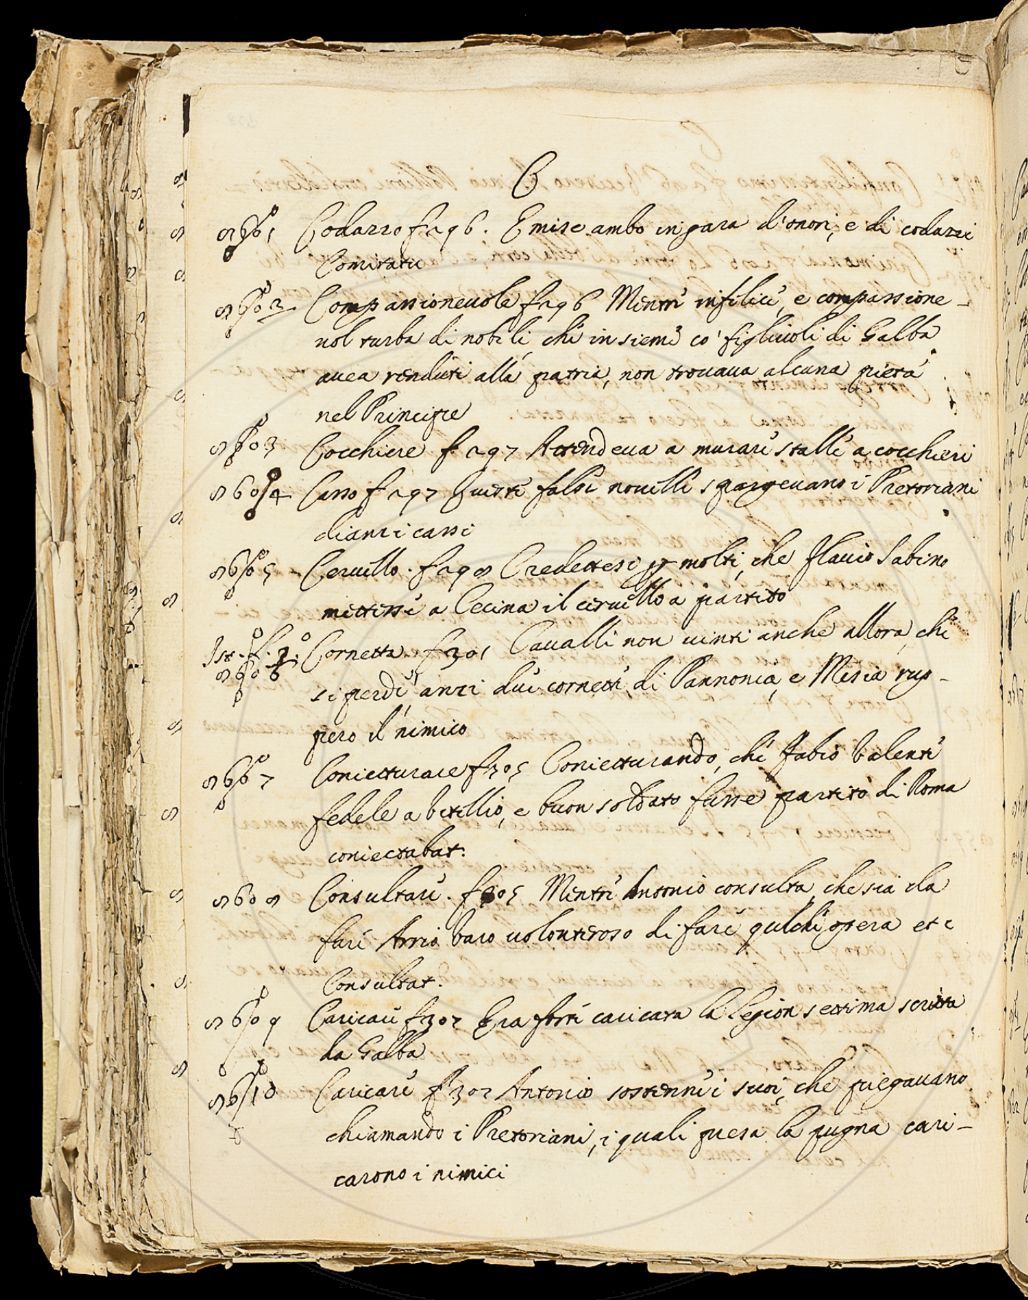 C
8601 Codazzo f 296. Emise ambo in gara d'onori, e di codazzi
Comitatu
8602 Compassionevole f 296 Mentre infelice, e compassione-
vol turba di nobili che insieme co' figliuoli di Galba
avea renduti alla patria, non trovava alcuna pietà
nel Principe
8603 Cocchiere f 297 Attendeva a murare stalle a cocchieri
8604 Casso f 297 Queste false novelle spargevano i Pretoriani
dianzi cassi
8605 Cervello. f 298 Credettesi p molti, che Flavio Sabino
mettesse a Cecina il cervello a partito
Ist. f. 3.
8606 Cornetta. f 301 Cavalli non vinti anche allora, che
si perdè, anzi due cornette, di Pannonia, e Mesia rup-
pero il nimico
8607 Conietturare f 305 Conietturando, che Fabio Valente
fedele a Vitellio, e buon soldato fusse partito di Roma
coniectabat.
8608 Consultare. f 305 Mentre Antonio consulta, che sia da
fare Arrio Varo volonteroso di fare qualche opera etc
Consultat.
8609 Caricare f 307 Era forte caricata la legion settima scritta
da Galba
8610 Caricare f 307 Antonio sostenne i suoi, che piegavano
chiamando i Pretoriani, i quali presa la pugna cari-
carono i nimici